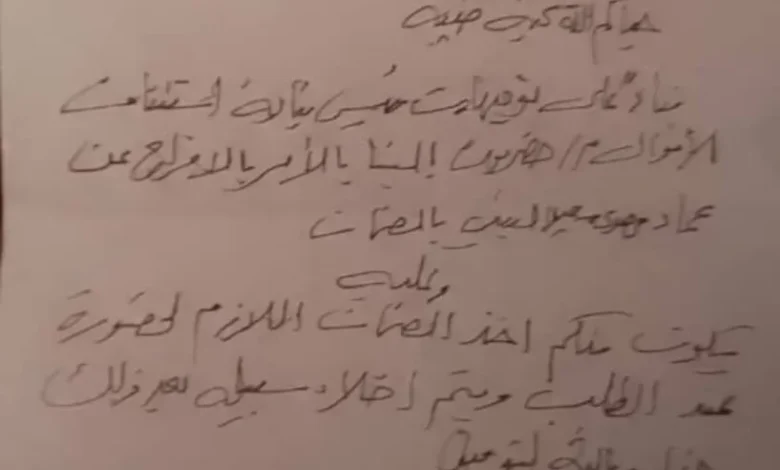 حياكم الله تحية طيبة
بناءً على توجيهات رئيس نيابة استئناف
الأموال م/حضرموت إلينا بالأمر بالافراج عن
عماد مهدي سعيد الديني بالضمان
وعليه
يكون منكم اخذ الضمان اللازم لحضوره
عند الطلب ويتم اخلاء سبيله بعد ذلك